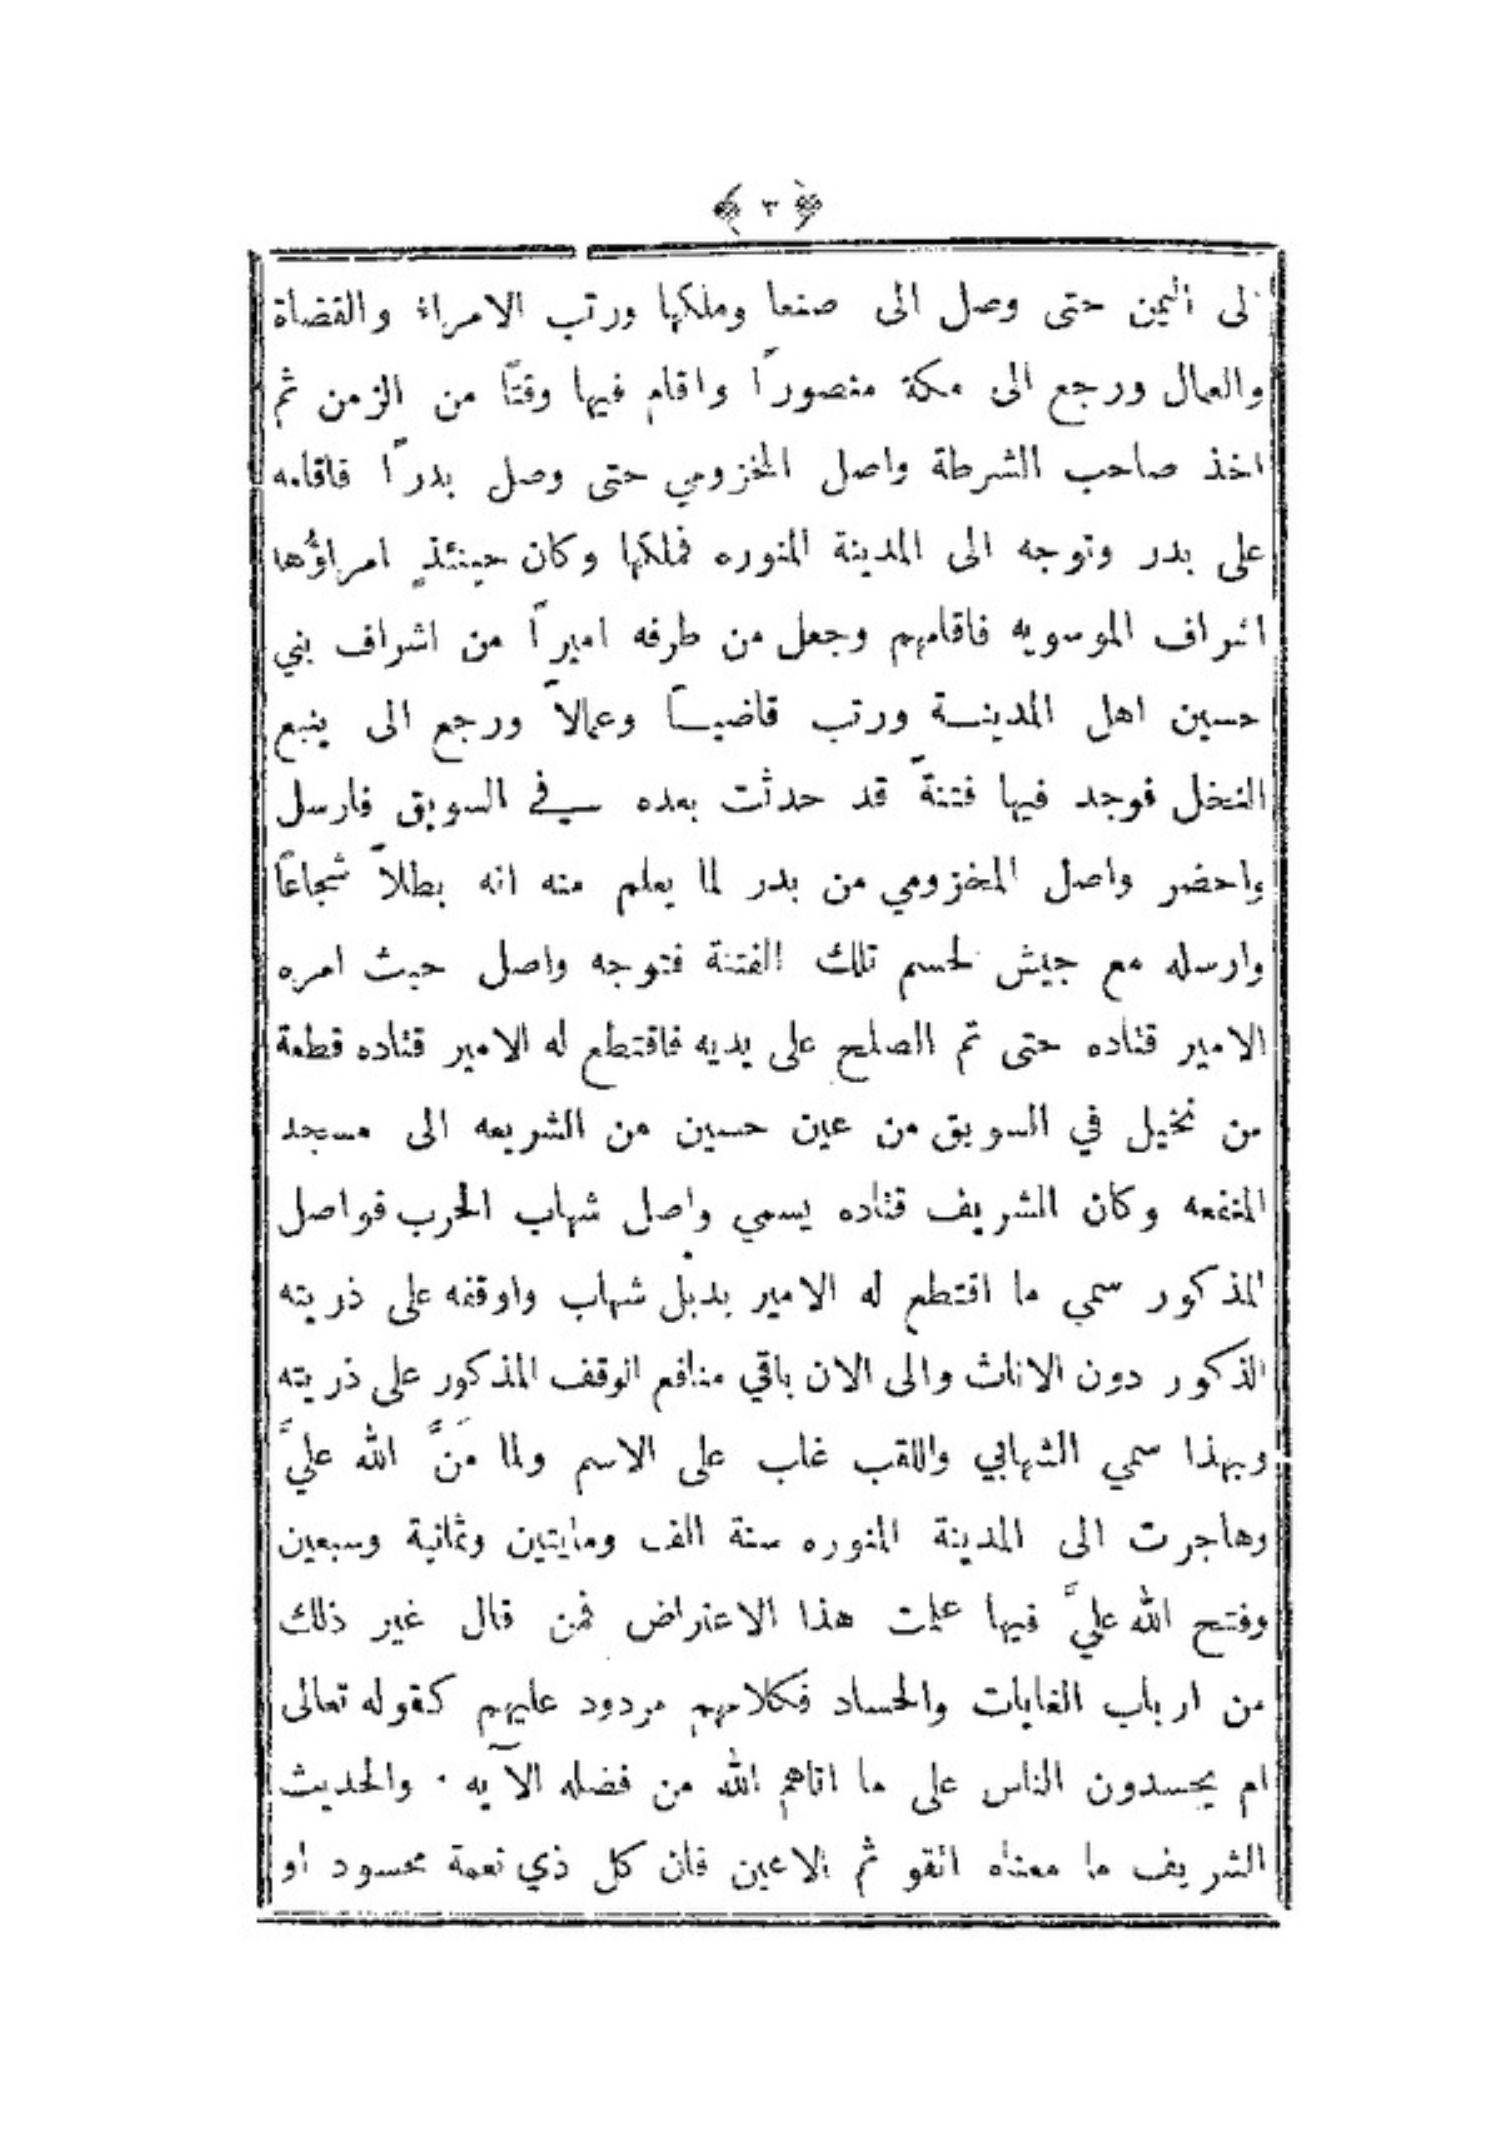 ﴿ ٣ ﴾
الى اليمن حتى وصل الى صنعا وملكها ورتب الامراء والقضاة
والعمال ورجع الى مكة منصوراً واقام فيها وقتًا من الزمن ثم
اخذ صاحب الشرطة واصل المخزومي حتى وصل بدراً فاقامه
على بدر وتوجه الى المدينة المنوره فملكها وكان حينئذٍ امراؤُها
اشراف الموسويه فاقامهم وجعل من طرفه اميراً من اشراف بني
حسين اهل المدينـة ورتب قاضيـاً وعمالاً ورجع الى ينبع
النخل فوجد فيها فتنةً قد حدثت بعده في السويق فارسل
واحضر واصل المخزومي من بدر لما يعلم منه انه بطلاً شجاعًا
وارسله مع جيش لحسم تلك الفتنة فتوجه واصل حيث امره
الامير قتاده حتى تم الصلح على يديه فاقتطع له الامير قتاده قطعة
من نخيل في السويق من عين حسين من الشريعه الى مسجد
وكان الشريف قتاده يسمي واصل شهاب الحرب فواصل
المذكور سمي ما اقتطع له الامير بدبل شهاب واوقفه على ذريته
الذكور دون الاناث والى الان باقي منافع الوقف المذكور على ذريته
وبهذا سمي الشهابي واللقب غلب على الاسم ولما مَنَّ الله عليَّ
وهاجرت الى المدينة المنوره سنة الف ومايتين وثمانية وسبعين
وفتح الله عليَّ فيها علمت هذا الاعتراض فمن قال غير ذلك
من ارباب الغايات والحساد فكلامهم مردود عليهم كقوله تعالى
ام يحسدون الناس على ما اتاهم الله من فضله الآيه ٠ والحديث
الشريف ما معناه اتقو ثم الاعين فان كل ذي نعمة محسود او